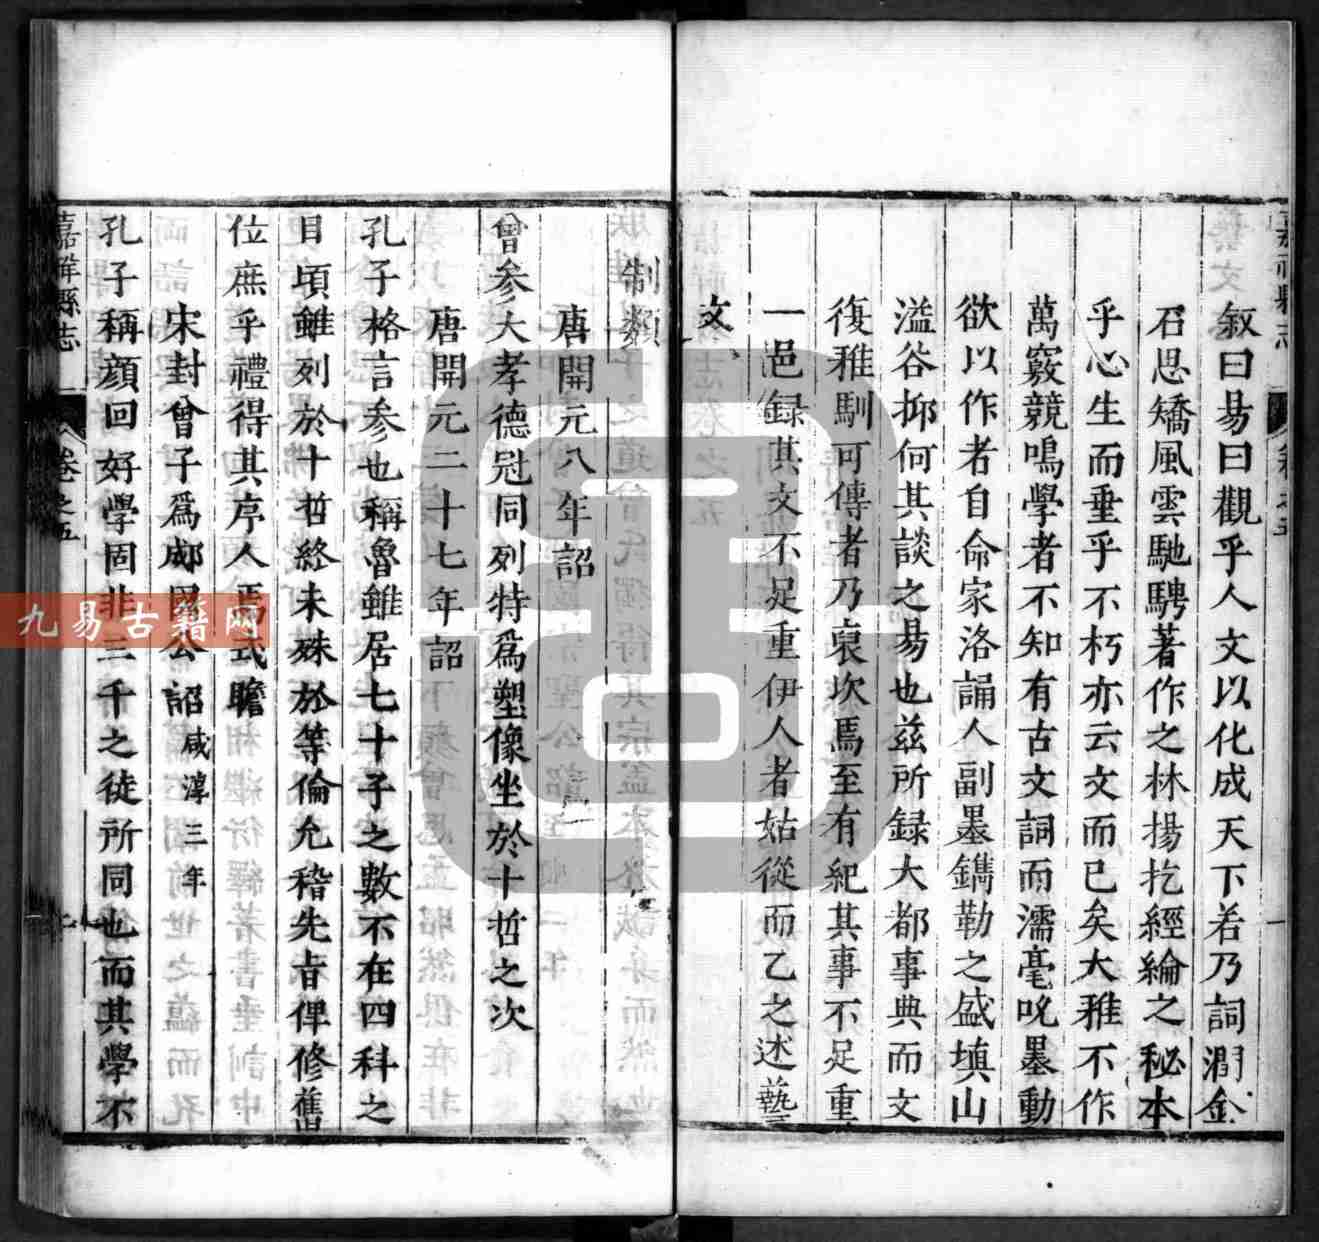 嘉祥縣志
卷之五
叙曰易曰觀乎人文以化成天下若乃詞潤金
石思矯風雲馳騁著作之林揚扢經綸之秘本
乎心生而垂乎不朽亦云文而已矣大雅不作
萬竅競鳴學者不知有古文詞而濡毫吮墨動
欲以作者自命家洛誦人副墨鐫勒之盛塡山
溢谷抑何其談之易也兹所録大都事典而文
復雅馴可傳者乃裒次焉至有紀其事不足重
一邑録其文不足重伊人者姑從而乙之述藝
文
制類
唐開元八年詔
曾參大孝德冠同列特爲塑像坐於十哲之次
唐開元二十七年詔
孔子格言參也稱魯雖居七十子之數不在四科之
目頃雖列於十哲終未殊於等倫允稽先旨俾修舊
位庶乎禮得其序人焉式瞻
宋封曾子爲郕國公詔 咸淳三年
孔子稱顔回好學固非三千之徒所同也而其學不
嘉祥縣志
卷之五
九易古籍网